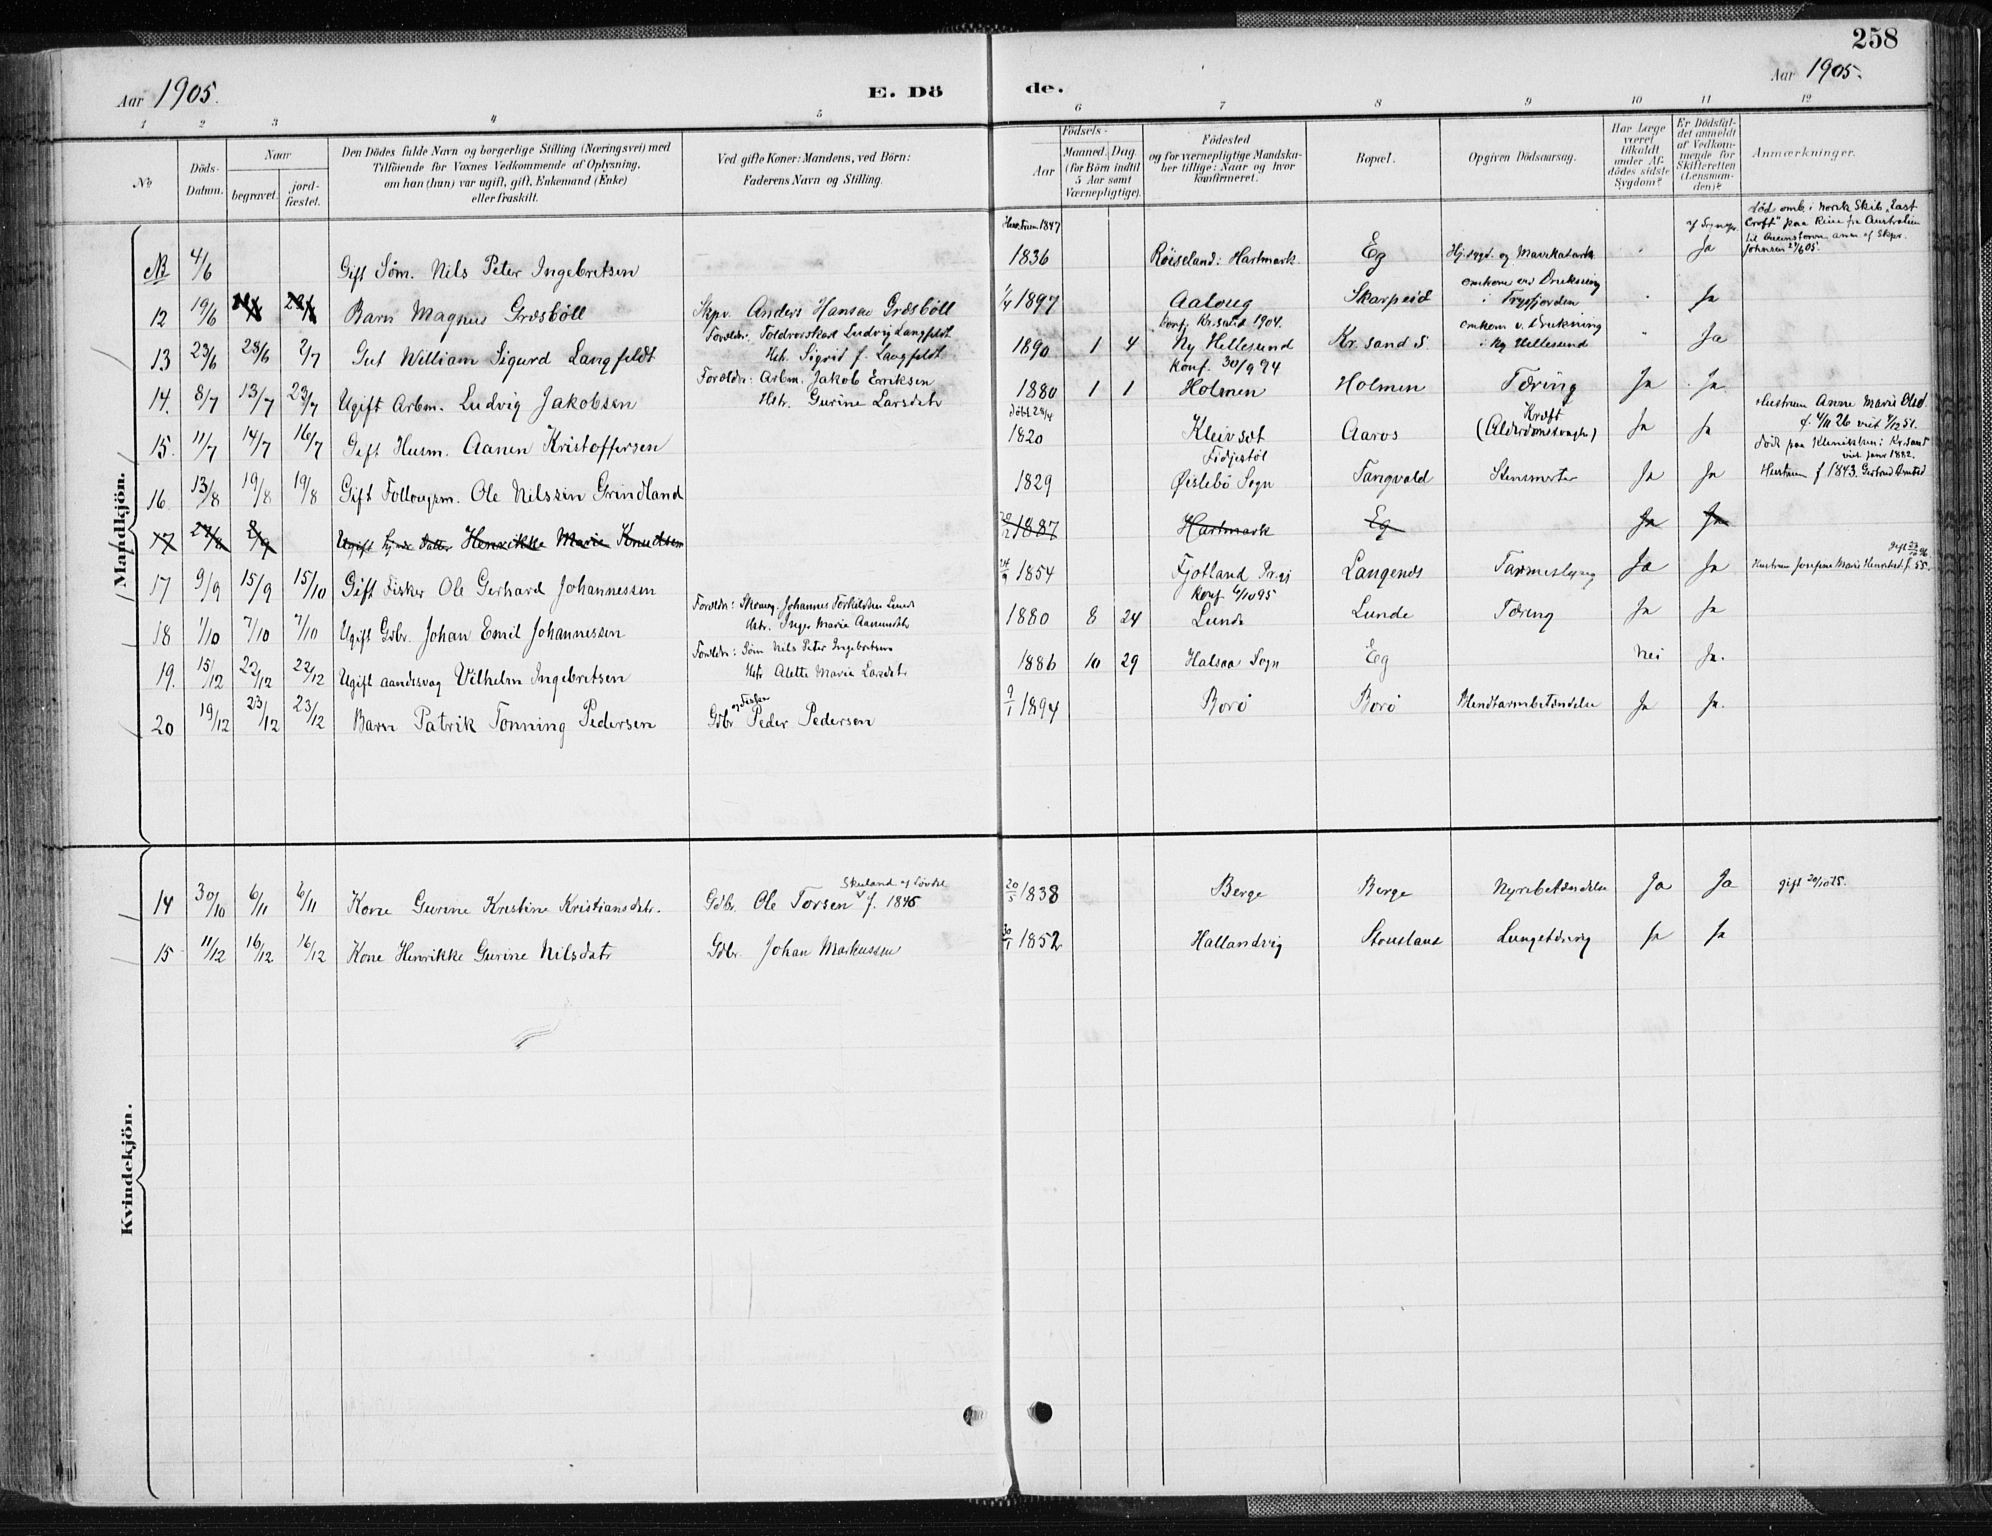 258
Aar 1905.
E. Dö
de.
Aar 1905.
1 2 3 4 5 6 7 8 9 10 11 12
No
Döds-
Datum.
Naar
begravet.
jord-
fæstet.
Den Dödes fulde Navn og borgerlige Stilling (Næringsvei) med
Tilföiende for Voxnes Vedkommende af Oplysning,
om han (hun) var ugift, gift, Enkemand (Enke)
eller fraskilt.
Ved gifte Koner: Mandens, ved Börn:
Faderens Navn og Stilling.
Födsels-
Aar
Maaned. Dag
(for Börn indtil
5 Aar samt
Værnepligtige).
Födested
og for værnepligtige Mandska-
ber tillige: Naar og hvor
konfirmeret.
Bopæl.
Opgiven Dödsaarsag.
Har Læge
været
tilkaldt
under Af-
dödes sidste
Sygdom?
Er Dödsfal-
det anmeldt
af Vedkom-
mende for
Skifteretten
(Lensman-
den)?
Anmærkninger.
Mandkjön.
Hustruen 1847
død omb. i norsk Skib "East
Croft" paa Reise fra Australien
til Queenstown anm. af Skpr.
Johnsen 27/6 05.
NB 4/6 Gift Søm. Nils Peter Ingebritsen 1836 Røiseland: Hartmark Eg Ja
omkom ved Drukning
12 19/6 Barn Magnus Græsböll Skpr. Anders Hansen Græsböll 1/4 1897 Aaloug Skarpeid i Trysfjorden Ja
Forældr. Toldroerskarl Ludvig Langfeldt konf. Kr.sand 1904. omkom v. Drukning
13 23/6 28/6 2/7 Gut William Sigurd Langfeldt Hstr. Sigrid f. Langfeldt 1890 1 4 Ny Hellesund Kr.sand S. i Ny Hellesund Ja
Forældr: Arbm. Jakob Eriksen Konf. 30/9 94
14. 8/7 13/7 23/7 Ugift Arbm. Ludvig Jakobsen Hstr. Gurine Larsdatr 1880 1 1 Holmen Holmen Tæring Ja Ja
døbt 24/4 Kræft Hustruen Anne Marie Olsd.
f. 4/11 26 viet 4/12 51.
15. 11/7 14/7 16/7 Gift Husm. Aanen Kristoffersen 1820 Kleivset Aaros (Alderdomssvaghed) Ja Ja
Fidjestöl død paa Kliniken i Kr.sand
viet Janr 1882.
16 13/8 19/8 19/8 Gift Føllougsm. Ole Nilssen Grindland 1829 Øislebö Sogn Tangvald Stensmerter Ja Ja Hustruen f. 1843. Gertrud
17 27/8 2/9 Ugift Datter Henrikke Marie Knudsen 1887 Hartmark Eg Ja Ja
gift 23/10 96.
17 9/9 15/9 15/10 Gift Fisker Ole Gerhard Johannessen 24/9 1854 Fjotland Pr.gj Langenes Ja Ja Hustruen Josefine Marie f. 55.
Forældr: Johannes Torkildsen Lunde Konf. 6/10 95
18 1/10 7/10 7/10 Ugift Gdbr. Johan Emil Johannessen Hstr. Inger Marie Aanensdtr 1880 8 24 Lunde Lunde Tæring Ja Ja
Forældr: Søm Nils Peter Ingebritsen
19. 15/12 22/12 22/12 Ugift aandssvag Vilhelm Ingebritsen Hstr Alette Marie Larsdtr 1886 10 29 Halsaa Sogn Eg Nei Ja.
og Fisker
20 19/12 23/12 23/12 Barn Patrik Tønning Pedersen Gdbr Peder Pedersen 9/1 1894 Borö Borö Blindtarmbetændelse Ja Ja.
Kvindekjön.
Skuland
14 30/10 6/11 6/11 Kone Gurine Kristine Kristiansdatr. Gdbr. Ole Torsen f. 1845 20/5 1838 Berge Berge Nyrebetændelse Ja Ja gift 20/10 75.
15 11/12 16/12 16/12 Kone Henrikke Gurine Nilsdatr Gdbr. Johan Markussen 30/1 1852 Hallandvig Stousland Lungetæring Ja Ja